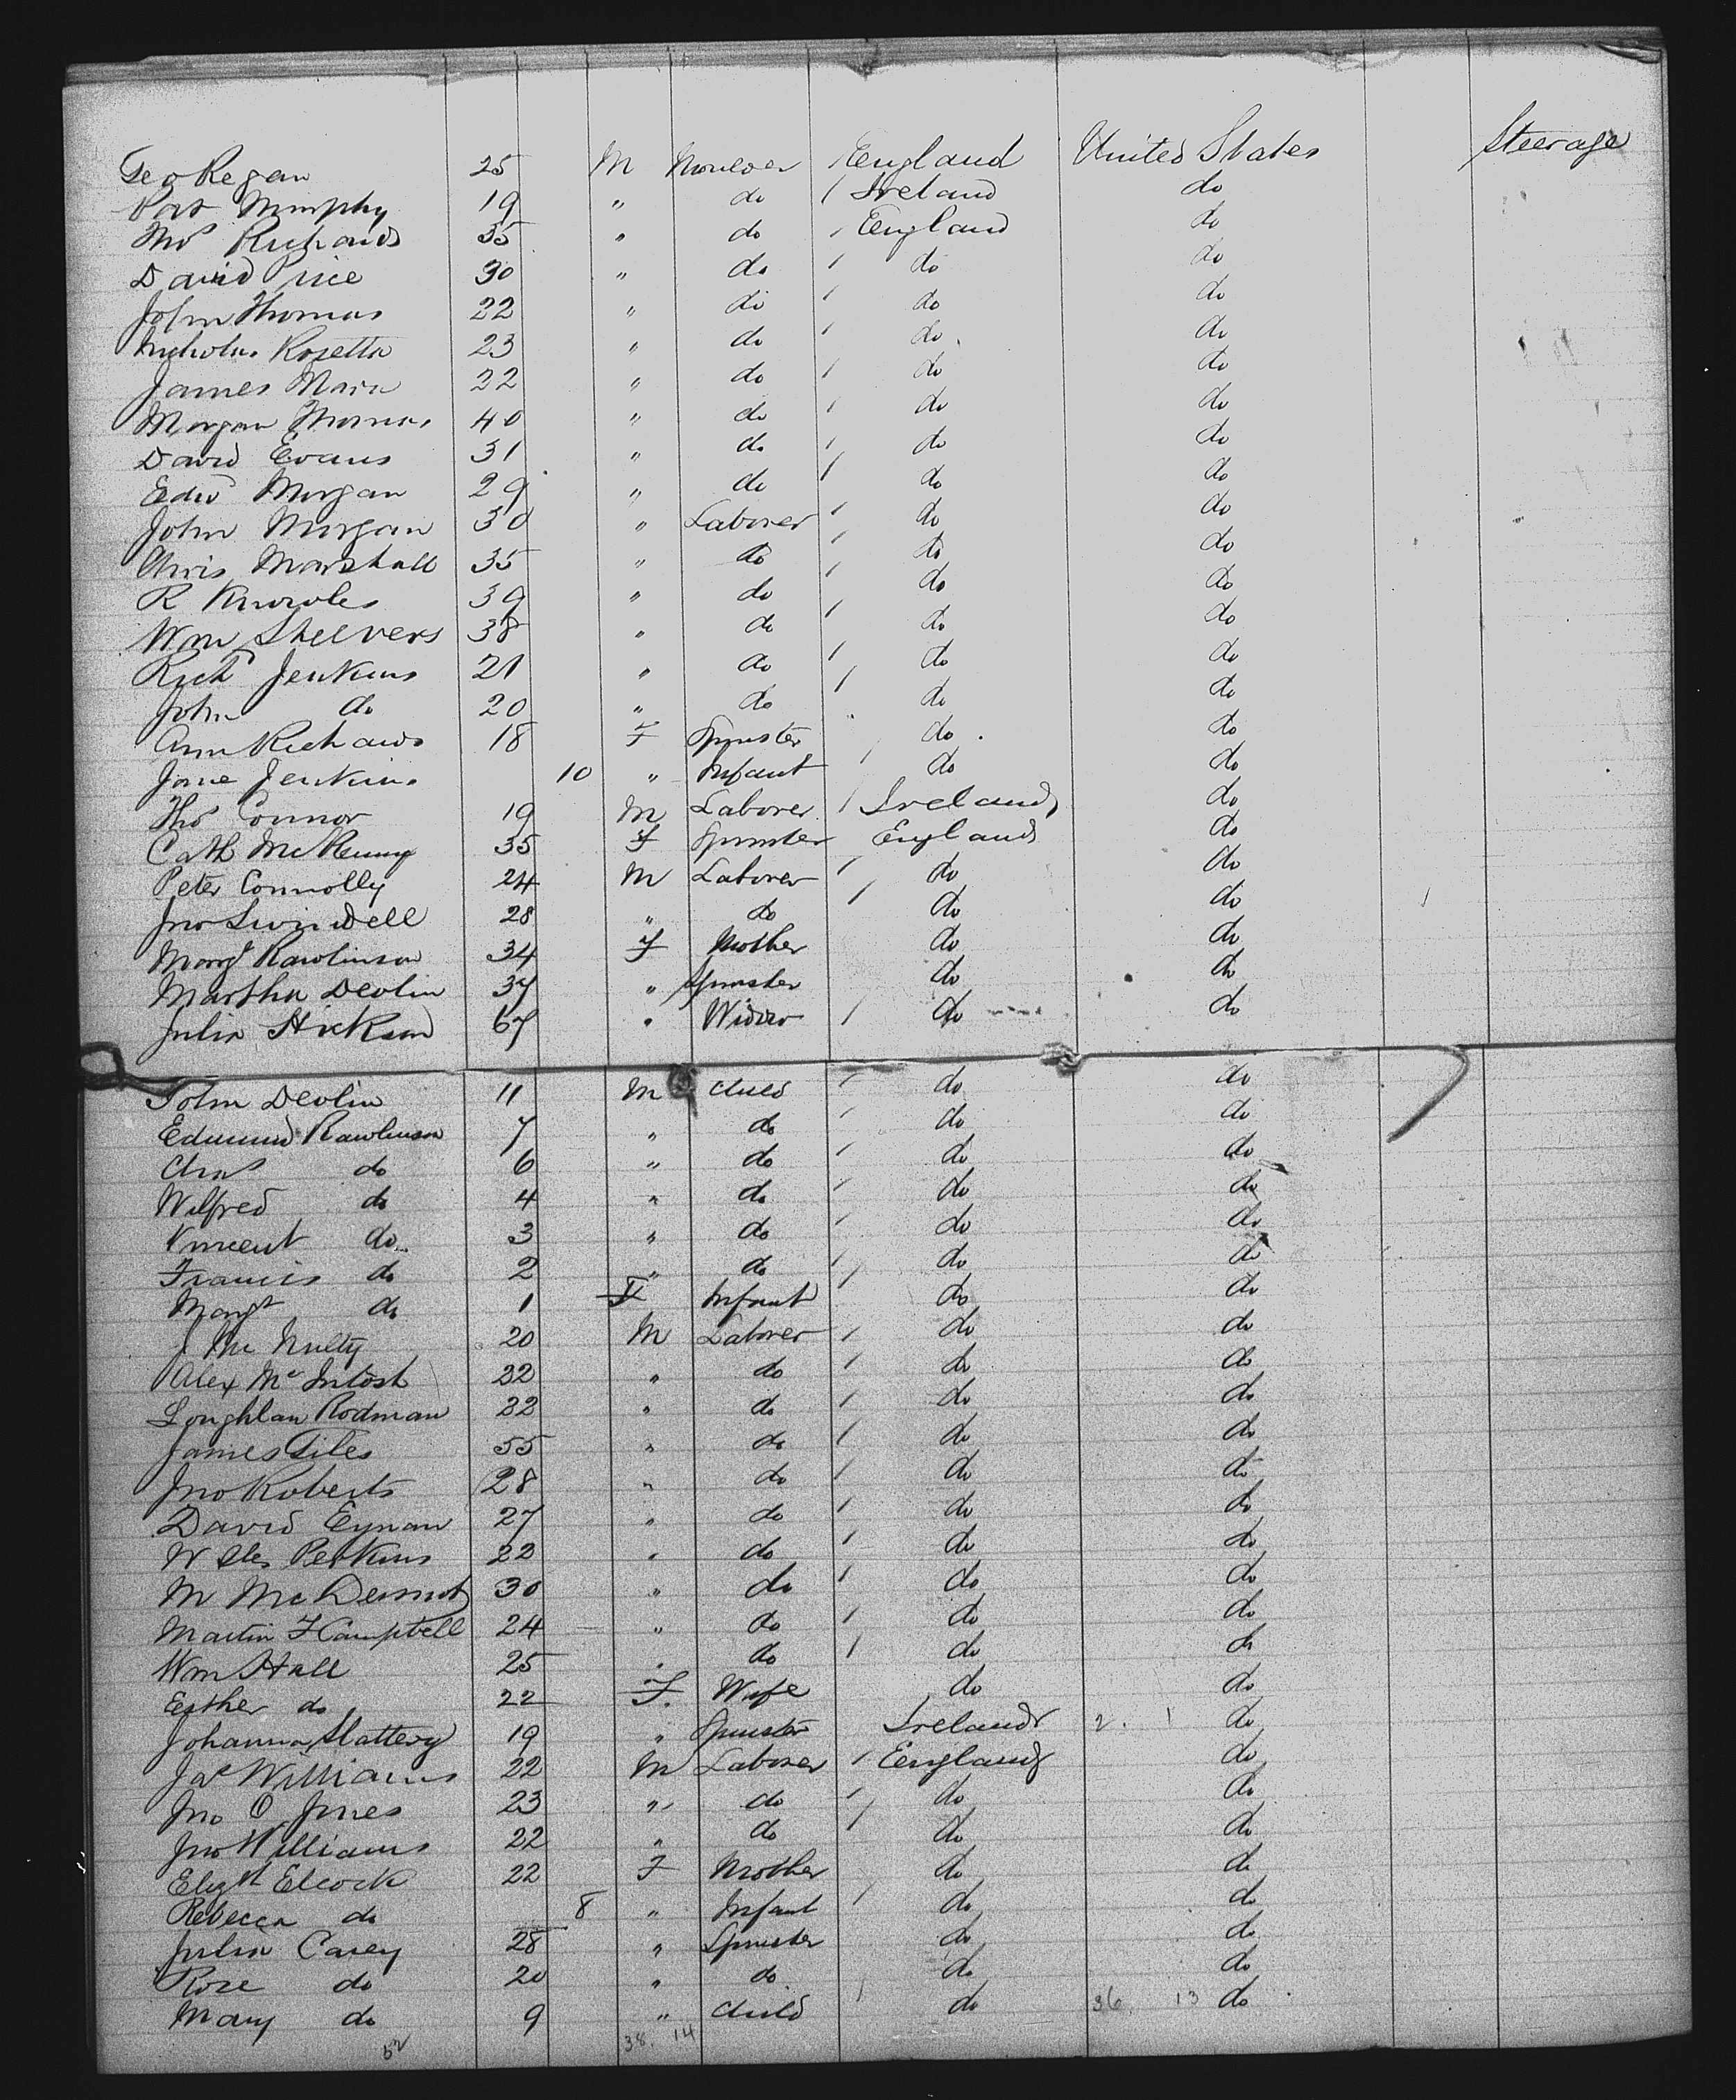 Geo Regan 25 M Moulder / England United States Steerage
Pat Murphy 19 " do / Ireland do
Thos Richards 35 " do / England do
David Price 30 " do / do do
John Thomas 22 " do / do do
Nicholas Rosetta 23 " do / do do
James Mara 22 " do / do do
Morgan Thomas 40 " do / do do
David Evans 31 " do / do do
Edwd Morgan 29 " do / do do
John Morgan 30 " Laborer / do do
Chris Marshall 35 " do / do do
R Knowles 39 " do / do do
Wm Sheevers 38 " do / do do
Richd Jenkins 21 " do / do do
John do 20 " do / do do
Ann Richards 18 F Spinster do do
Jane Jenkins 10 " Infant / do do
Thos Connor 19 M Laborer / Ireland do
Cath McKenny 35 F Spinster England do
Peter Connolly 24 M Laborer / do do
Jno Swindell 28 " do / do do
Margt Rawlinson 34 F Mother do do
Martha Devlin 37 " Spinster do do
Julia Hickson 67 " Widow / do do
John Devlin 11 M Child / do do
Edmund Rawlinson 7 " do / do do
Chas do 6 " do / do do
Wilfred do 4 " do / do do
Vincent do 3 " do / do do
Francis do 2 " do / do do
Margt do 1 F Infant / do do
J McNulty 20 M Laborer / do do
Alex McIntosh 22 " do / do do
Loughlan Rodman 22 " do / do do
James Giles 55 " do / do do
Jno Roberts 28 " do / do do
David Eynan 27 " do / do do
W Perkins 22 " do / do do
M McDermot 30 " do / do do
Martin F Campbell 24 " do / do do
Wm Hall 25 " do / do do
Esther do 22 F. Wife do do
Johanna Slattery 19 " Spinster Ireland 2. 1 do
Jas Williams 22 M Laborer / England do
Jno O Jones 23 " do / do do
Jno Williams 22 " do / do do
Elizth Elcock 22 F Mother do do
Rebecca do 8 " Infant / do do
Julia Carey 28 " Spinster do do
Rose do 20 " do do do
Mary do 9 " Child / do 36. 13 do
52 38. 14